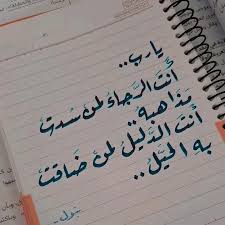 يارب..
أنتَ الرَّجاءُ لمن سُدت
مذاهبهُ..
أنتَ الدَّليلُ لمن ضاقت
به الحيَلُ..